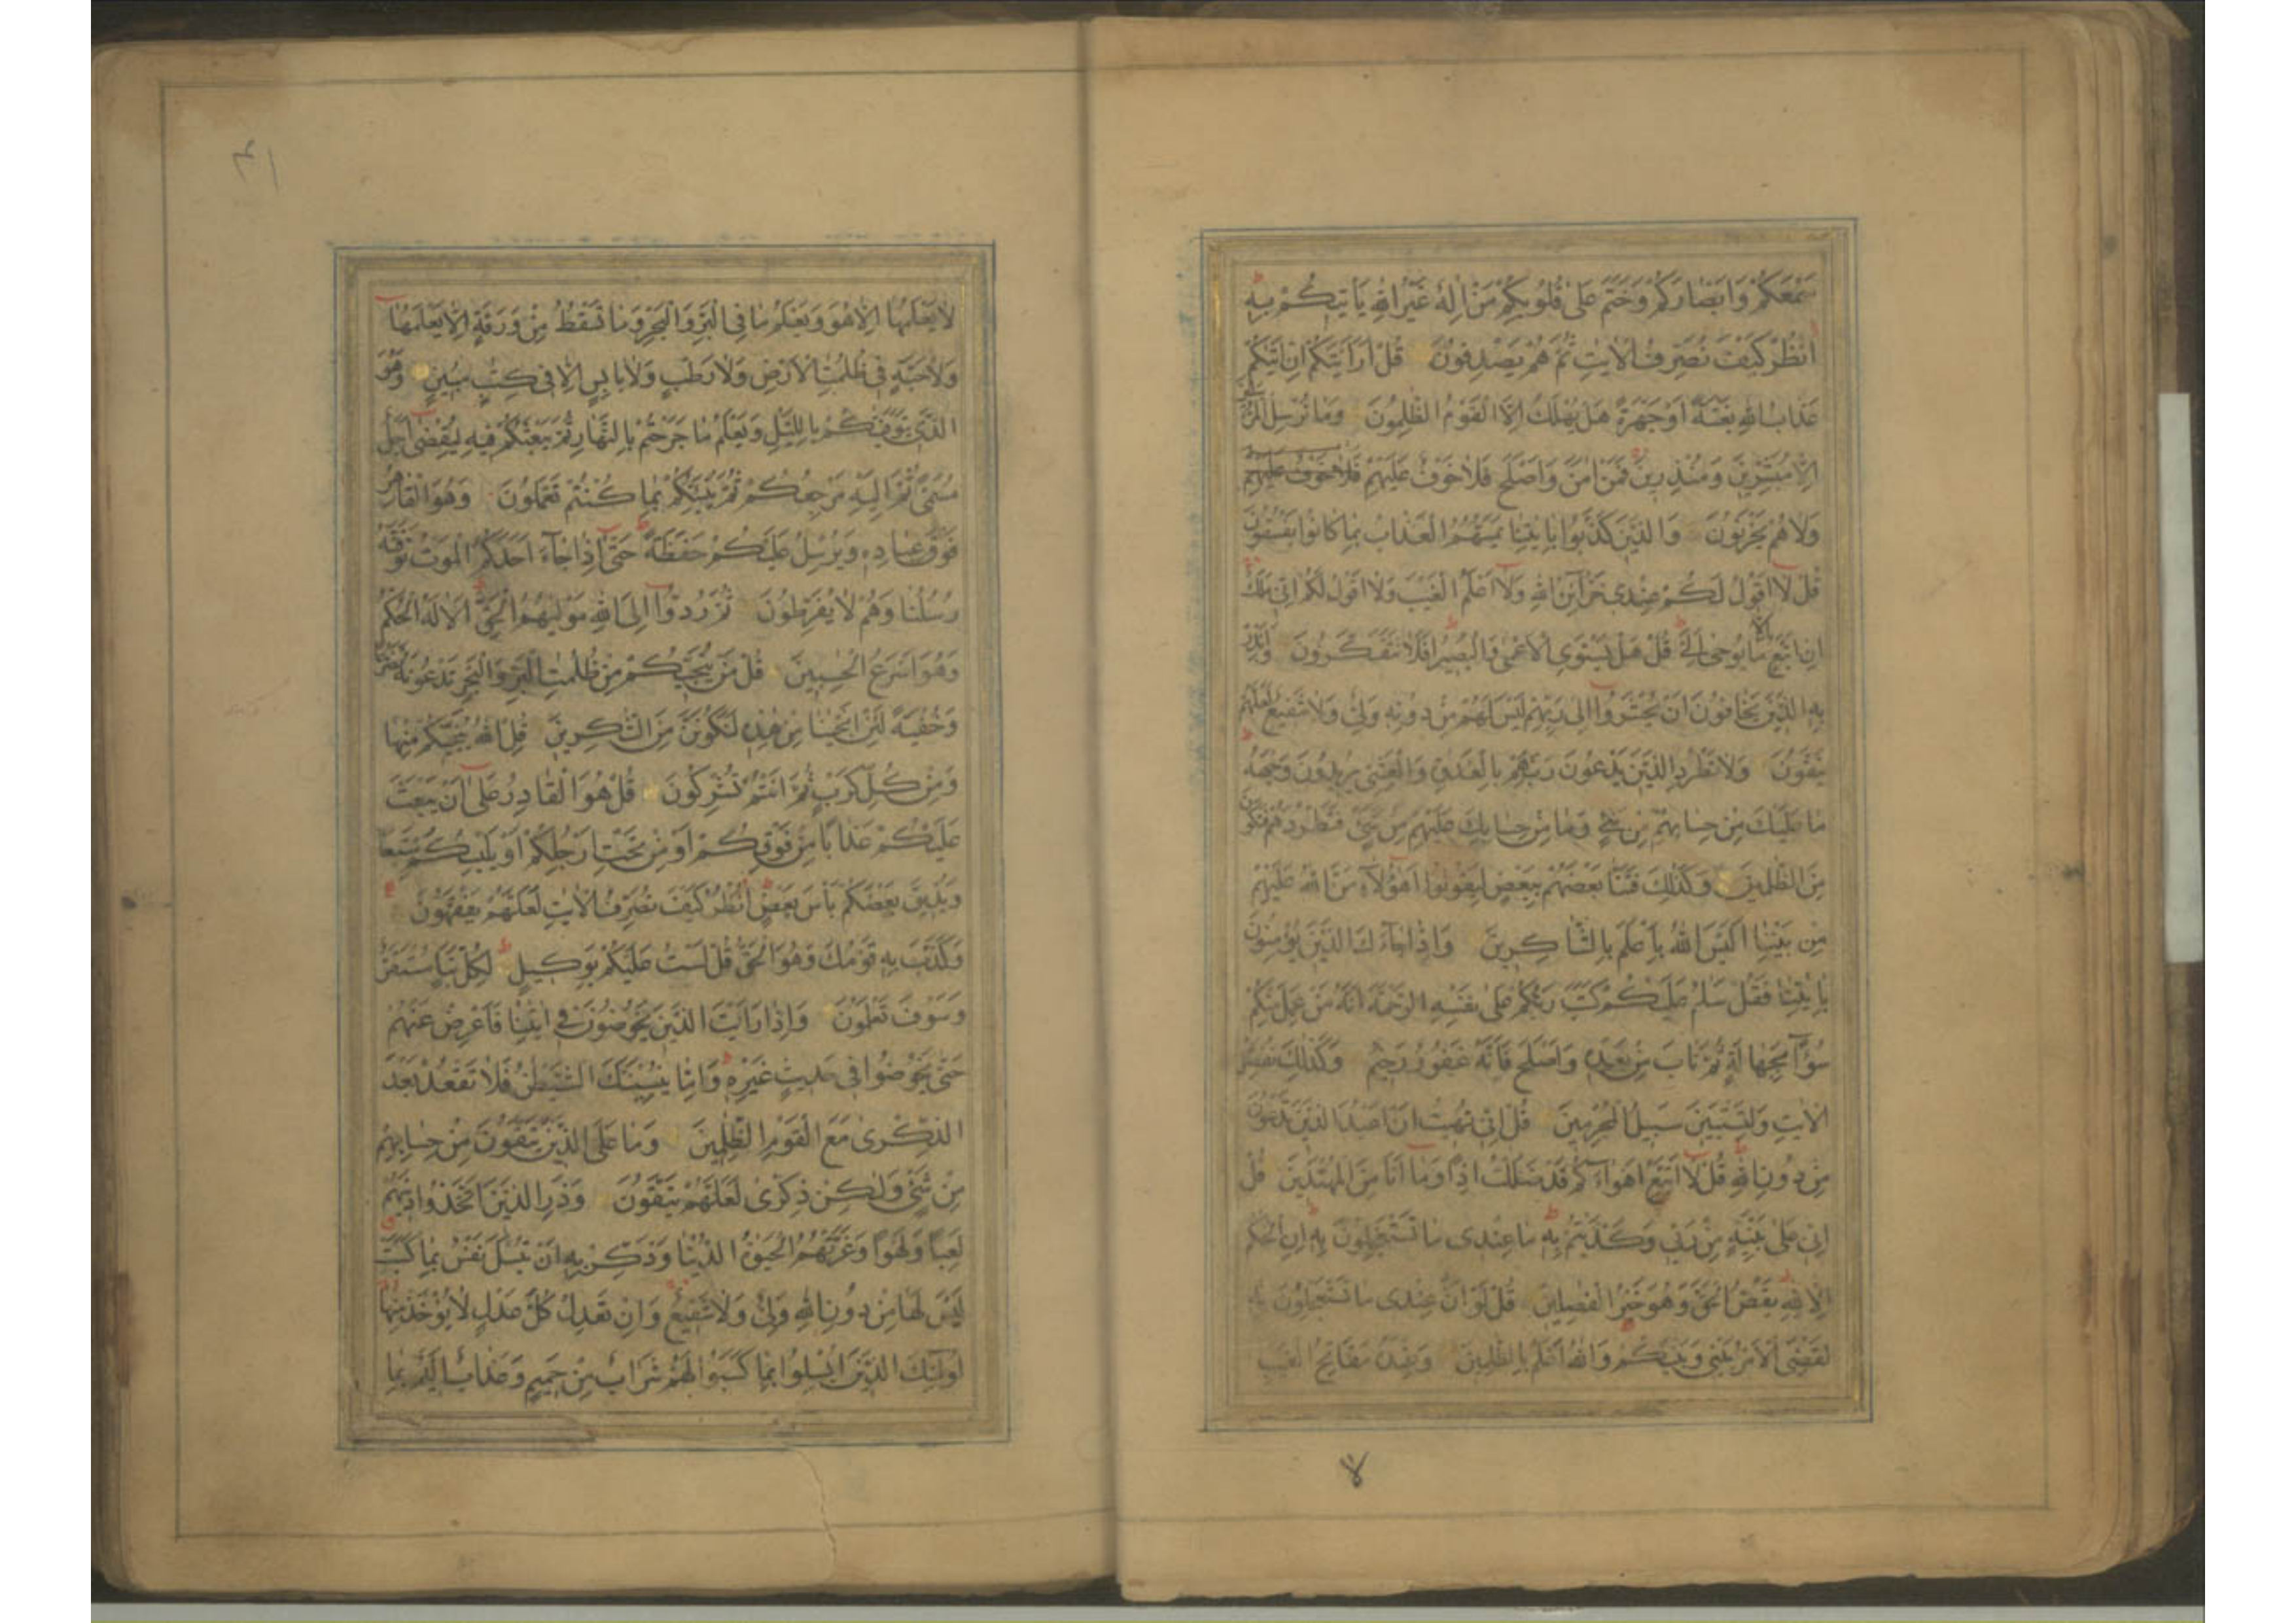 سَمْعَكُمْ وَاَبْصَارَكُمْ وَخَتَمَ عَلٰى قُلُوبِكُمْ مَنْ اِلٰهٌ غَيْرُ اللّٰهِ يَاْتِيكُمْ بِهِ
اُنْظُرْ كَيْفَ نُصَرِّفُ الْاٰيٰتِ ثُمَّ هُمْ يَصْدِفُونَ قُلْ اَرَاَيْتَكُمْ اِنْ اَتٰيكُمْ
عَذَابُ اللّٰهِ بَغْتَةً اَوْ جَهْرَةً هَلْ يُهْلَكُ اِلَّا الْقَوْمُ الظّٰلِمُونَ وَمَا نُرْسِلُ الْمُرْسَلِينَ
اِلَّا مُبَشِّرِينَ وَمُنْذِرِينَ فَمَنْ اٰمَنَ وَاَصْلَحَ فَلَا خَوْفٌ عَلَيْهِمْ فَلَا خَوْفٌ عَلَيْهِمْ
وَلَا هُمْ يَحْزَنُونَ وَالَّذِينَ كَذَّبُوا بِاٰيٰتِنَا يَمَسُّهُمُ الْعَذَابُ بِمَا كَانُوا يَفْسُقُونَ
قُلْ لَا اَقُولُ لَكُمْ عِنْدِى خَزَآئِنُ اللّٰهِ وَلَا اَعْلَمُ الْغَيْبَ وَلَا اَقُولُ لَكُمْ اِنِّى مَلَكٌ
اِنْ اَتَّبِعُ اِلَّا مَا يُوحٰى اِلَىَّ قُلْ هَلْ يَسْتَوِى الْاَعْمٰى وَالْبَصِيرُ اَفَلَا تَتَفَكَّرُونَ وَاَنْذِرْ
بِهِ الَّذِينَ يَخَافُونَ اَنْ يُحْشَرُوا اِلٰى رَبِّهِمْ لَيْسَ لَهُمْ مِنْ دُونِهِ وَلِىٌّ وَلَا شَفِيعٌ لَعَلَّهُمْ
يَتَّقُونَ وَلَا تَطْرُدِ الَّذِينَ يَدْعُونَ رَبَّهُمْ بِالْغَدٰوةِ وَالْعَشِىِّ يُرِيدُونَ وَجْهَهُ
مَا عَلَيْكَ مِنْ حِسَابِهِمْ مِنْ شَىْءٍ وَمَا مِنْ حِسَابِكَ عَلَيْهِمْ مِنْ شَىْءٍ فَتَطْرُدَهُمْ فَتَكُونَ
مِنَ الظّٰلِمِينَ وَكَذٰلِكَ فَتَنَّا بَعْضَهُمْ بِبَعْضٍ لِيَقُولُوا اَهٰؤُلَآءِ مَنَّ اللّٰهُ عَلَيْهِمْ
مِنْ بَيْنِنَا اَلَيْسَ اللّٰهُ بِاَعْلَمَ بِالشَّاكِرِينَ وَاِذَا جَآءَكَ الَّذِينَ يُؤْمِنُونَ
بِاٰيٰتِنَا فَقُلْ سَلٰمٌ عَلَيْكُمْ كَتَبَ رَبُّكُمْ عَلٰى نَفْسِهِ الرَّحْمَةَ اَنَّهُ مَنْ عَمِلَ مِنْكُمْ
سُوٓءًا بِجَهَالَةٍ ثُمَّ تَابَ مِنْ بَعْدِهِ وَاَصْلَحَ فَاَنَّهُ غَفُورٌ رَحِيمٌ وَكَذٰلِكَ نُفَصِّلُ
الْاٰيٰتِ وَلِتَسْتَبِينَ سَبِيلُ الْمُجْرِمِينَ قُلْ اِنِّى نُهِيتُ اَنْ اَعْبُدَ الَّذِينَ تَدْعُونَ
مِنْ دُونِ اللّٰهِ قُلْ لَا اَتَّبِعُ اَهْوَآءَكُمْ قَدْ ضَلَلْتُ اِذًا وَمَا اَنَا مِنَ الْمُهْتَدِينَ قُلْ
اِنِّى عَلٰى بَيِّنَةٍ مِنْ رَبِّى وَكَذَّبْتُمْ بِهِ مَا عِنْدِى مَا تَسْتَعْجِلُونَ بِهِ اِنِ الْحُكْمُ
اِلَّا لِلّٰهِ يَقُصُّ الْحَقَّ وَهُوَ خَيْرُ الْفٰصِلِينَ قُلْ لَوْ اَنَّ عِنْدِى مَا تَسْتَعْجِلُونَ بِهِ
لَقُضِىَ الْاَمْرُ بَيْنِى وَبَيْنَكُمْ وَاللّٰهُ اَعْلَمُ بِالظّٰلِمِينَ وَعِنْدَهُ مَفَاتِحُ الْغَيْبِ
لا
٤١
لَا يَعْلَمُهَا اِلَّا هُوَ وَيَعْلَمُ مَا فِى الْبَرِّ وَالْبَحْرِ وَمَا تَسْقُطُ مِنْ وَرَقَةٍ اِلَّا يَعْلَمُهَا
وَلَا حَبَّةٍ فِى ظُلُمٰتِ الْاَرْضِ وَلَا رَطْبٍ وَلَا يَابِسٍ اِلَّا فِى كِتٰبٍ مُبِينٍ وَهُوَ
الَّذِى يَتَوَفّٰيكُمْ بِاللَّيْلِ وَيَعْلَمُ مَا جَرَحْتُمْ بِالنَّهَارِ ثُمَّ يَبْعَثُكُمْ فِيهِ لِيُقْضٰى اَجَلٌ
مُسَمًّى ثُمَّ اِلَيْهِ مَرْجِعُكُمْ ثُمَّ يُنَبِّئُكُمْ بِمَا كُنْتُمْ تَعْمَلُونَ وَهُوَ الْقَاهِرُ
فَوْقَ عِبَادِهِ وَيُرْسِلُ عَلَيْكُمْ حَفَظَةً حَتّٰى اِذَا جَآءَ اَحَدَكُمُ الْمَوْتُ تَوَفَّتْهُ
رُسُلُنَا وَهُمْ لَا يُفَرِّطُونَ ثُمَّ رُدُّوا اِلَى اللّٰهِ مَوْلٰيهُمُ الْحَقِّ اَلَا لَهُ الْحُكْمُ
وَهُوَ اَسْرَعُ الْحٰسِبِينَ قُلْ مَنْ يُنَجِّيكُمْ مِنْ ظُلُمٰتِ الْبَرِّ وَالْبَحْرِ تَدْعُونَهُ تَضَرُّعًا
وَخُفْيَةً لَئِنْ اَنْجَيْنَا مِنْ هٰذِهِ لَنَكُونَنَّ مِنَ الشّٰكِرِينَ قُلِ اللّٰهُ يُنَجِّيكُمْ مِنْهَا
وَمِنْ كُلِّ كَرْبٍ ثُمَّ اَنْتُمْ تُشْرِكُونَ قُلْ هُوَ الْقَادِرُ عَلٰى اَنْ يَبْعَثَ
عَلَيْكُمْ عَذَابًا مِنْ فَوْقِكُمْ اَوْ مِنْ تَحْتِ اَرْجُلِكُمْ اَوْ يَلْبِسَكُمْ شِيَعًا
وَيُذِيقَ بَعْضَكُمْ بَاْسَ بَعْضٍ اُنْظُرْ كَيْفَ نُصَرِّفُ الْاٰيٰتِ لَعَلَّهُمْ يَفْقَهُونَ
وَكَذَّبَ بِهِ قَوْمُكَ وَهُوَ الْحَقُّ قُلْ لَسْتُ عَلَيْكُمْ بِوَكِيلٍ لِكُلِّ نَبَاٍ مُسْتَقَرٌّ
وَسَوْفَ تَعْلَمُونَ وَاِذَا رَاَيْتَ الَّذِينَ يَخُوضُونَ فِى اٰيٰتِنَا فَاَعْرِضْ عَنْهُمْ
حَتّٰى يَخُوضُوا فِى حَدِيثٍ غَيْرِهِ وَاِمَّا يُنْسِيَنَّكَ الشَّيْطٰنُ فَلَا تَقْعُدْ بَعْدَ
الذِّكْرٰى مَعَ الْقَوْمِ الظّٰلِمِينَ وَمَا عَلَى الَّذِينَ يَتَّقُونَ مِنْ حِسَابِهِمْ
مِنْ شَىْءٍ وَلٰكِنْ ذِكْرٰى لَعَلَّهُمْ يَتَّقُونَ وَذَرِ الَّذِينَ اتَّخَذُوا دِينَهُمْ
لَعِبًا وَلَهْوًا وَغَرَّتْهُمُ الْحَيٰوةُ الدُّنْيَا وَذَكِّرْ بِهِ اَنْ تُبْسَلَ نَفْسٌ بِمَا كَسَبَتْ
لَيْسَ لَهَا مِنْ دُونِ اللّٰهِ وَلِىٌّ وَلَا شَفِيعٌ وَاِنْ تَعْدِلْ كُلَّ عَدْلٍ لَا يُؤْخَذْ مِنْهَا
اُولٰٓئِكَ الَّذِينَ اُبْسِلُوا بِمَا كَسَبُوا لَهُمْ شَرَابٌ مِنْ حَمِيمٍ وَعَذَابٌ اَلِيمٌ بِمَا